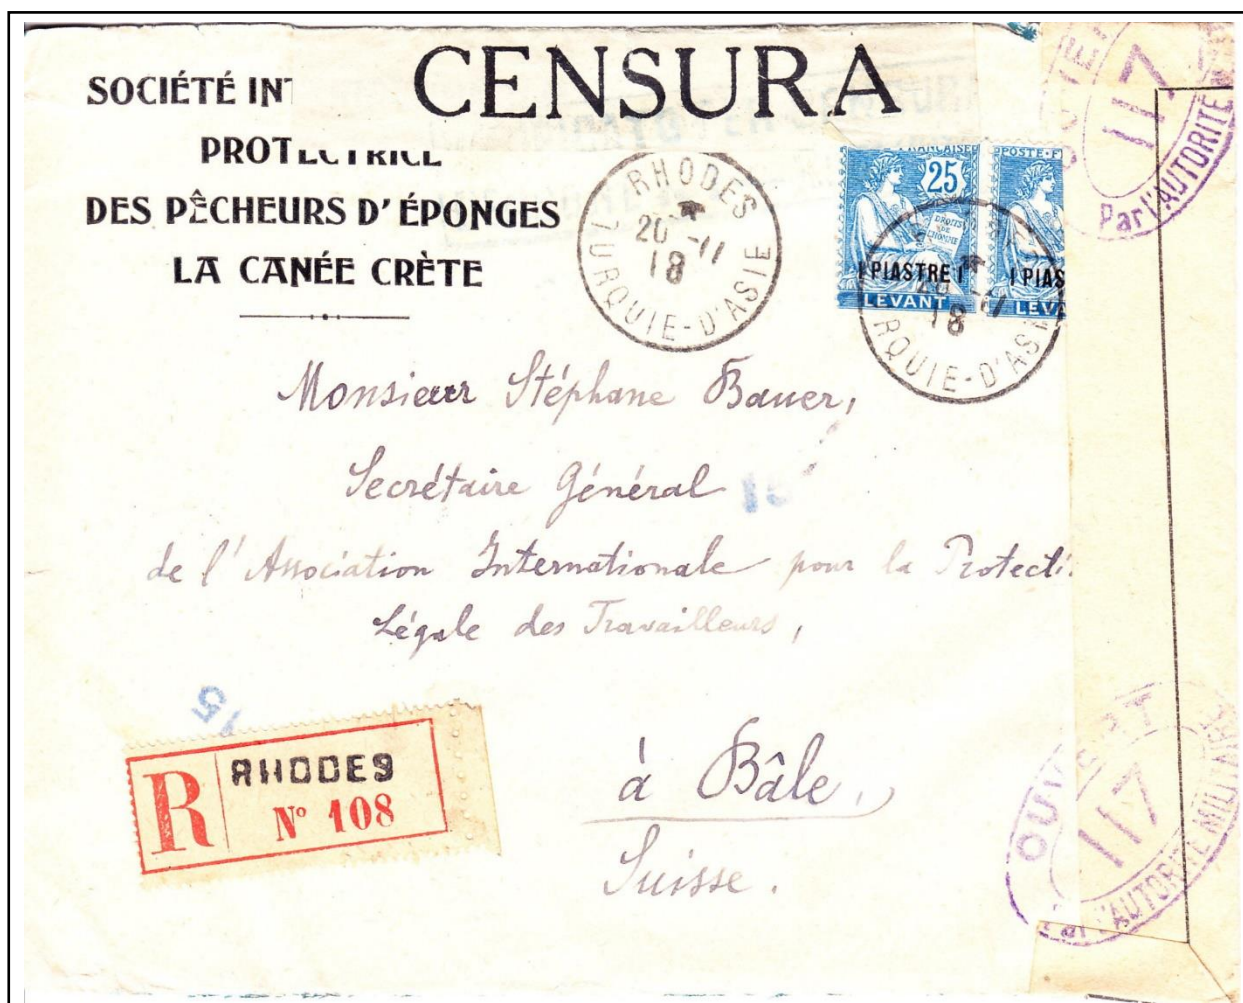 CENSURA
SOCIÉTÉ INT
PROTECTRICE
DES PÊCHEURS D'ÉPONGES
LA CANÉE CRÈTE
RHODES
20 -11
18
TURQUIE-D'ASIE
FRANÇAISE
25
DROITS
DE
L'HOMME
1 PIASTRE 1
LEVANT
POSTE F
1 PIAS
LEV
20 -11
18
RQUIE-D'ASIE
117
Par l'AUTORITÉ
Monsieur Stéphane Bauer,
Secrétaire Général
de l'Association Internationale pour la Protecti
Légale des Travailleurs,
15
R
RHODES
N° 108
à Bâle,
Suisse.
OUVERT
117
Par l'AUTORITÉ MILITAIRE